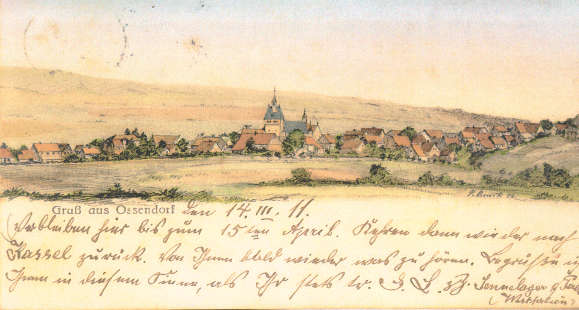 Gruß aus Ossendorf den 14. III. 11.
Verbleiben hier bis zum 15ten April. Kehren dann wieder nach
Kassel zurück. Von Ihnen bald wieder was zu hören. Begrüße
Ihnen in diesem Sinne, als Ihr stets tr. Sennelager
(Westfalen)